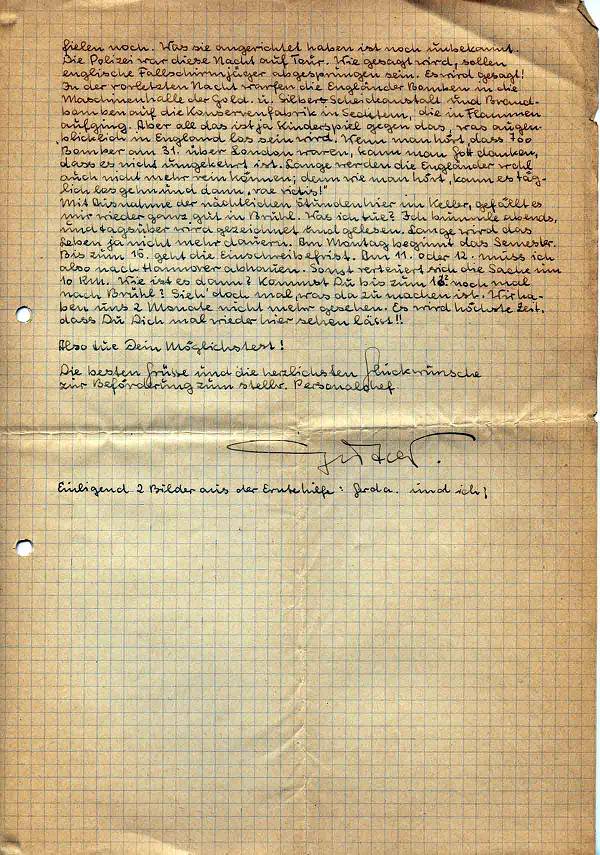 fielen noch. Was sie angerichtet haben ist noch unbekannt.
Die Polizei war diese Nacht auf Tour. Wie gesagt wird, sollen
englische Fallschirmjäger abgesprungen sein. Es wird gesagt!
In der vorletzten Nacht warfen die Engländer Bomben in die
Maschinenhalle der Gold. u. Silber Scheideanstalt und Brand-
bomben auf die Konservenfabrik in Sechtem, die in Flammen
aufging. Aber all das ist ja Kinderspiel gegen das, was augen-
blicklich in England los sein wird. Wenn man hört, dass 700
Bomber am 31. über London waren, kann man Gott danken,
dass es nicht umgekehrt ist. Lange werden die Engländer wohl
auch nicht mehr können; denn wie man hört, kann es täg-
lich losgehn und dann „vae victis!"
Mit Ausnahme der nächtlichen Stunden hier im Keller, gefällt es
mir wieder ganz gut in Brühl. Was ich tue? Ich bummle abends,
und tagsüber wird gezeichnet und gelesen. Lange wird das
Leben ja nicht mehr dauern. Am Montag beginnt das Semester.
Bis zum 16. geht die Einschreibefrist. Am 11. oder 12. muss ich
also nach Hannover abhauen. Sonst verteuert sich die Sache um
10 RM. Wie ist es dann? Kommst Du bis zum noch mal
nach Brühl? Sieh' doch mal, was da zu machen ist. Wir ha-
ben uns 2 Monate nicht mehr gesehen. Es wird höchste Zeit,
dass Du Dich mal wieder hier sehen lässt!!
Also tue Dein Möglichstes!
Die besten Grüsse und die herzlichsten Glückwünsche
zur Beförderung zum stellv. Personalchef
Einligend 2 Bilder aus der Erntehilfe: Gerda. und ich!